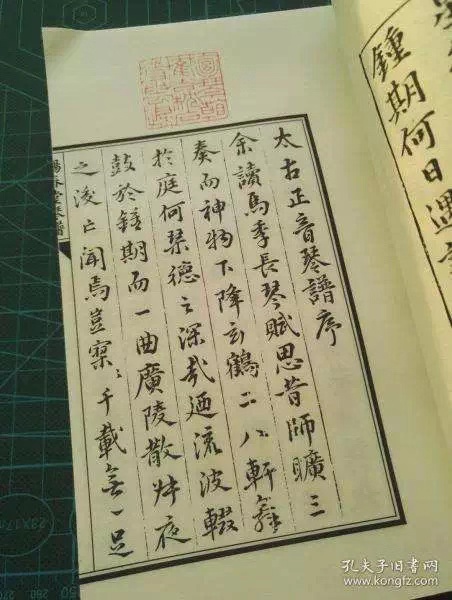 鍾期何日遇
太古正音琴譜序
余讀馬季長琴賦思昔師曠三
奏而神物下降玄鶴二八軒舞
於庭何琹德之深哉廼流波輟
鼓於鍾期而一曲廣陵散叔夜
之後亡聞焉豈寥〻千載無一足
陽春堂琴譜
孔夫子旧书网
www.kongfz.com